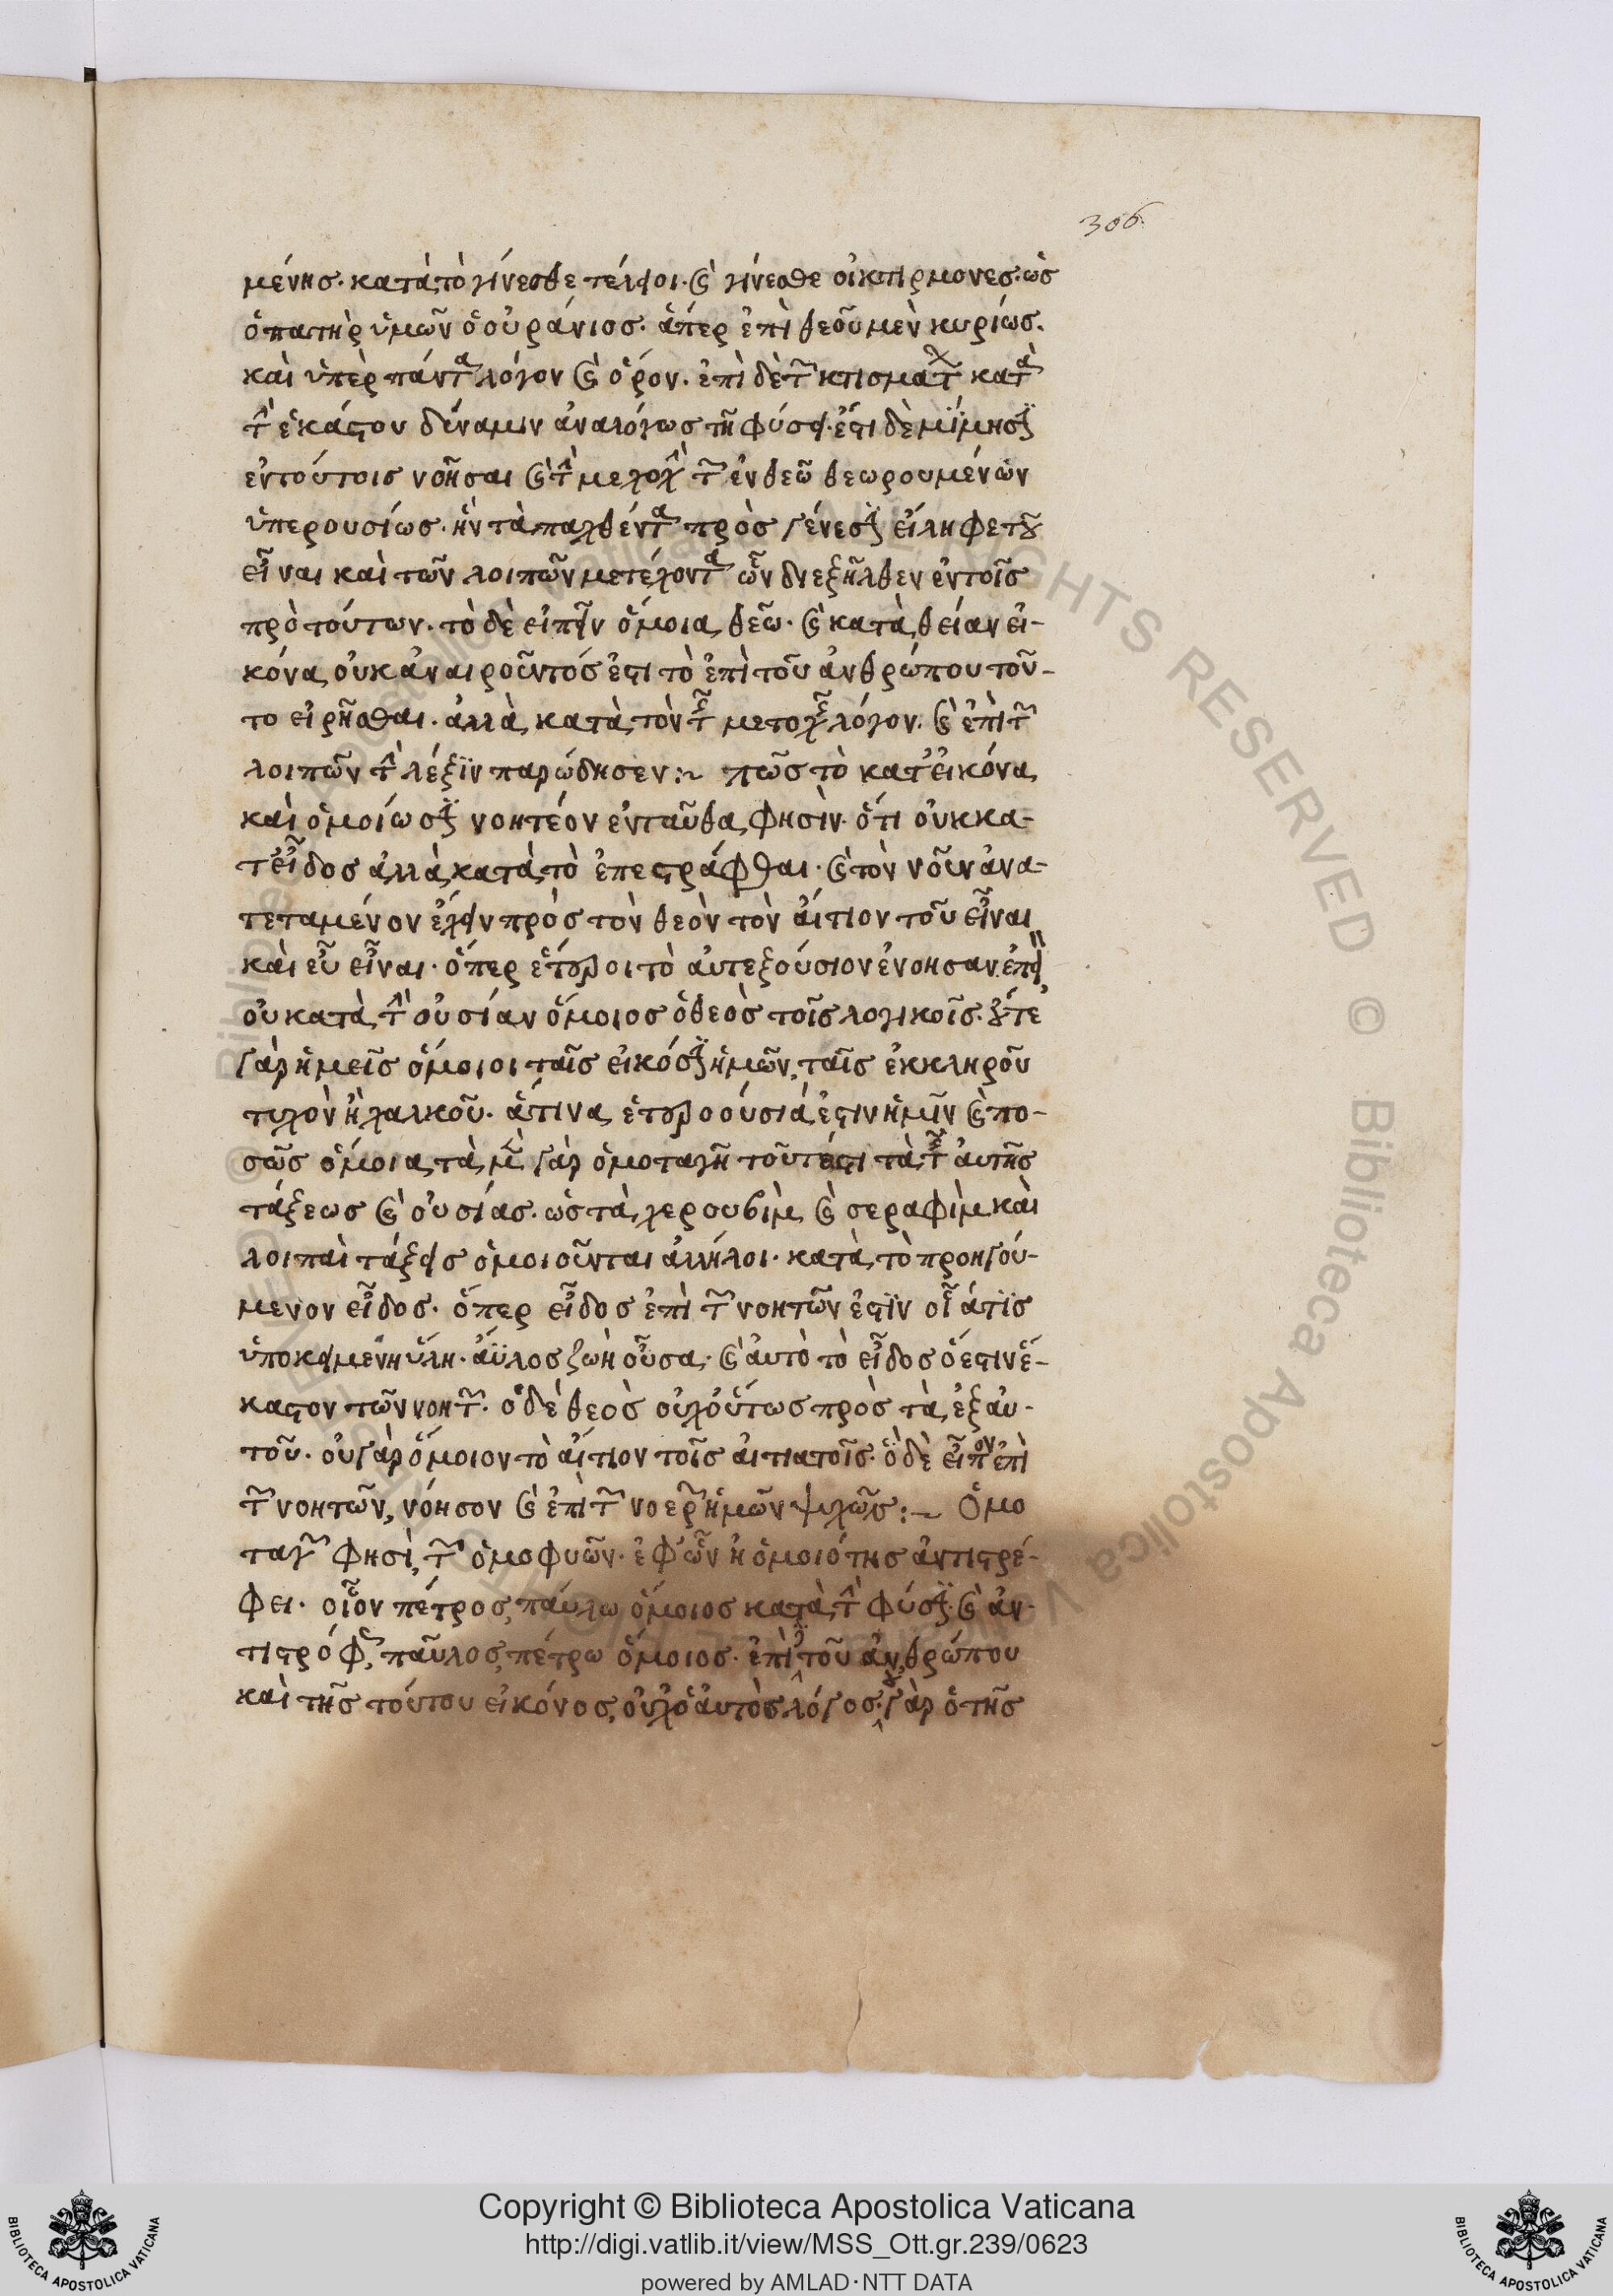 306
μένης· κατὰ τὸ γίνεσθε τέλειοι· καὶ γίνεσθε οἰκτιρμονες· ὡς
ὁ πατὴρ ὑμῶν ὁ οὐράνιος· ἅπερ ἐπὶ θεοῦ μὲν κυρίως.
καὶ ὑπὲρ πάντα λόγον καὶ ὅρον. ἐπὶ δὲ τῶν κτισμάτων κατὰ
τὴν ἑκάστου δύναμιν ἀναλόγως τῇ φύσει· ἔστι δὲ μίμησιν
ἐν τούτοις νοῆσαι καὶ τὴν μετοχὴν τῶν ἐν θεῶ θεωρουμένων
ὑπερουσίως· ἣν τὰ παραχθέντα πρὸς γένεσιν εἴληφε τοῦ
εἶναι καὶ τῶν λοιπῶν μετέχοντα ὧν διεξῆλθεν ἐν τοῖς
πρὸ τούτων· τὸ δὲ εἰπεῖν ὅμοια θεῶ· καὶ κατὰ θείαν εἰ-
κόνα οὐκ ἀναιροῦντός ἐστι τὸ ἐπὶ τοῦ ἀνθρώπου τοῦ-
το εἰρῆσθαι· ἀλλὰ κατὰ τὸν τῆς μετοχῆς λόγον. καὶ ἐπὶ τῶν
λοιπῶν τὴν λέξιν παρώδησεν:~ πῶς τὸ κατ' εἰκόνα
καὶ ὁμοίωσιν νοητέον ἐνταῦθα φησὶν· ὅτι οὐκ κα-
τ' εἶδος ἀλλὰ κατὰ τὸ ἐπεστράφθαι· καὶ τὸν νοῦν ἀνα-
τεταμένον ἔχειν πρὸς τὸν θεὸν τὸν αἴτιον τοῦ εἶναι
καὶ εὖ εἶναι· ὅπερ ἕτεροι τὸ αὐτεξούσιον ἐνόησαν. ἐπεὶ
οὐ κατὰ τὴν οὐσίαν ὅμοιος ὁ θεὸς τοῖς λογικοῖς· οὔτε
γὰρ ἡμεῖς ὅμοιοι ταῖς εἰκόσιν ἡμῶν, ταῖς ἐκ κληροῦ
τυχὸν ἢ χαλκοῦ· ἅτινα ἑτεροούσιά ἐστιν ἡμῖν καὶ πο-
σῶς ὅμοια, τὰ μὲν γὰρ ὁμοταγῆ τοῦτέστι τὰ τῆς αὐτῆς
τάξεως καὶ οὐσίας· ὡς τὰ χερουβὶμ καὶ σεραφὶμ καὶ
λοιπαὶ τάξεις ὁμοιοῦνται ἀλλήλοι· κατὰ τὸ προηγού-
μενον εἶδος· ὅπερ εἶδος ἐπὶ τῶν νοητῶν ἐστὶν οἷά τις
ὑποκειμένη ὕλη· ἄϋλος ζωὴ οὖσα· καὶ αὐτὸ τὸ εἶδος ὅ ἐστιν ἕ-
καστον τῶν νοητῶν· ὁ δὲ θεὸς οὐχ οὕτως πρὸς τὰ ἐξ αὐ-
τοῦ· οὐ γὰρ ὅμοιον τὸ αἴτιον τοῖς αἰτιατοῖς· ὃ δὲ εἶπον ἐπὶ
τῶν νοητῶν, νόησον καὶ ἐπὶ τῶν νοερῶν ἡμῶν ψυχῶν:~ Ὁμο
ταγῶν φησὶ, τῶν ὁμοφυῶν· ἐφ' ὧν ἡ ὁμοιότης ἀντιστρέ-
φει· οἷον πέτρος, παύλω ὅμοιος κατὰ τὴν φύσιν· καὶ ἀν-
τιστρόφως, παῦλος, πέτρω ὅμοιος· ἐπὶ δὲ τοῦ ἀνθρώπου
καὶ τῆς τούτου εἰκόνος, οὐχ ὁ αὐτὸς λόγος· οὐ γὰρ ὁ τῆς
Copyright © Biblioteca Apostolica Vaticana
http://digi.vatlib.it/view/MSS_Ott.gr.239/0623
powered by AMLAD·NTT DATA
BIBLIOTECA APOSTOLICA VATICANA
BIBLIOTECA APOSTOLICA VATICANA